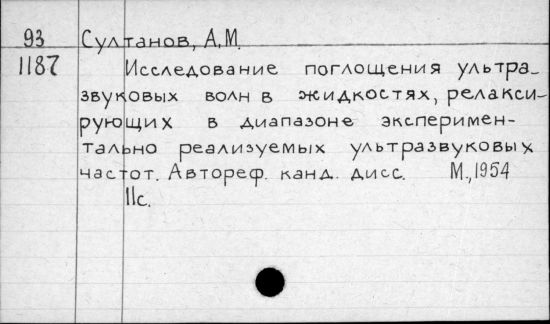 93 Султанов, А.М.
1187 Исследование поглощения ультра-
звуковых волн в жидкостях, релакси-
рующих в диапазоне эксперимен-
тально реализуемых ультразвуковых
частот. Автореф. канд. дисс. М., 1954
11с.